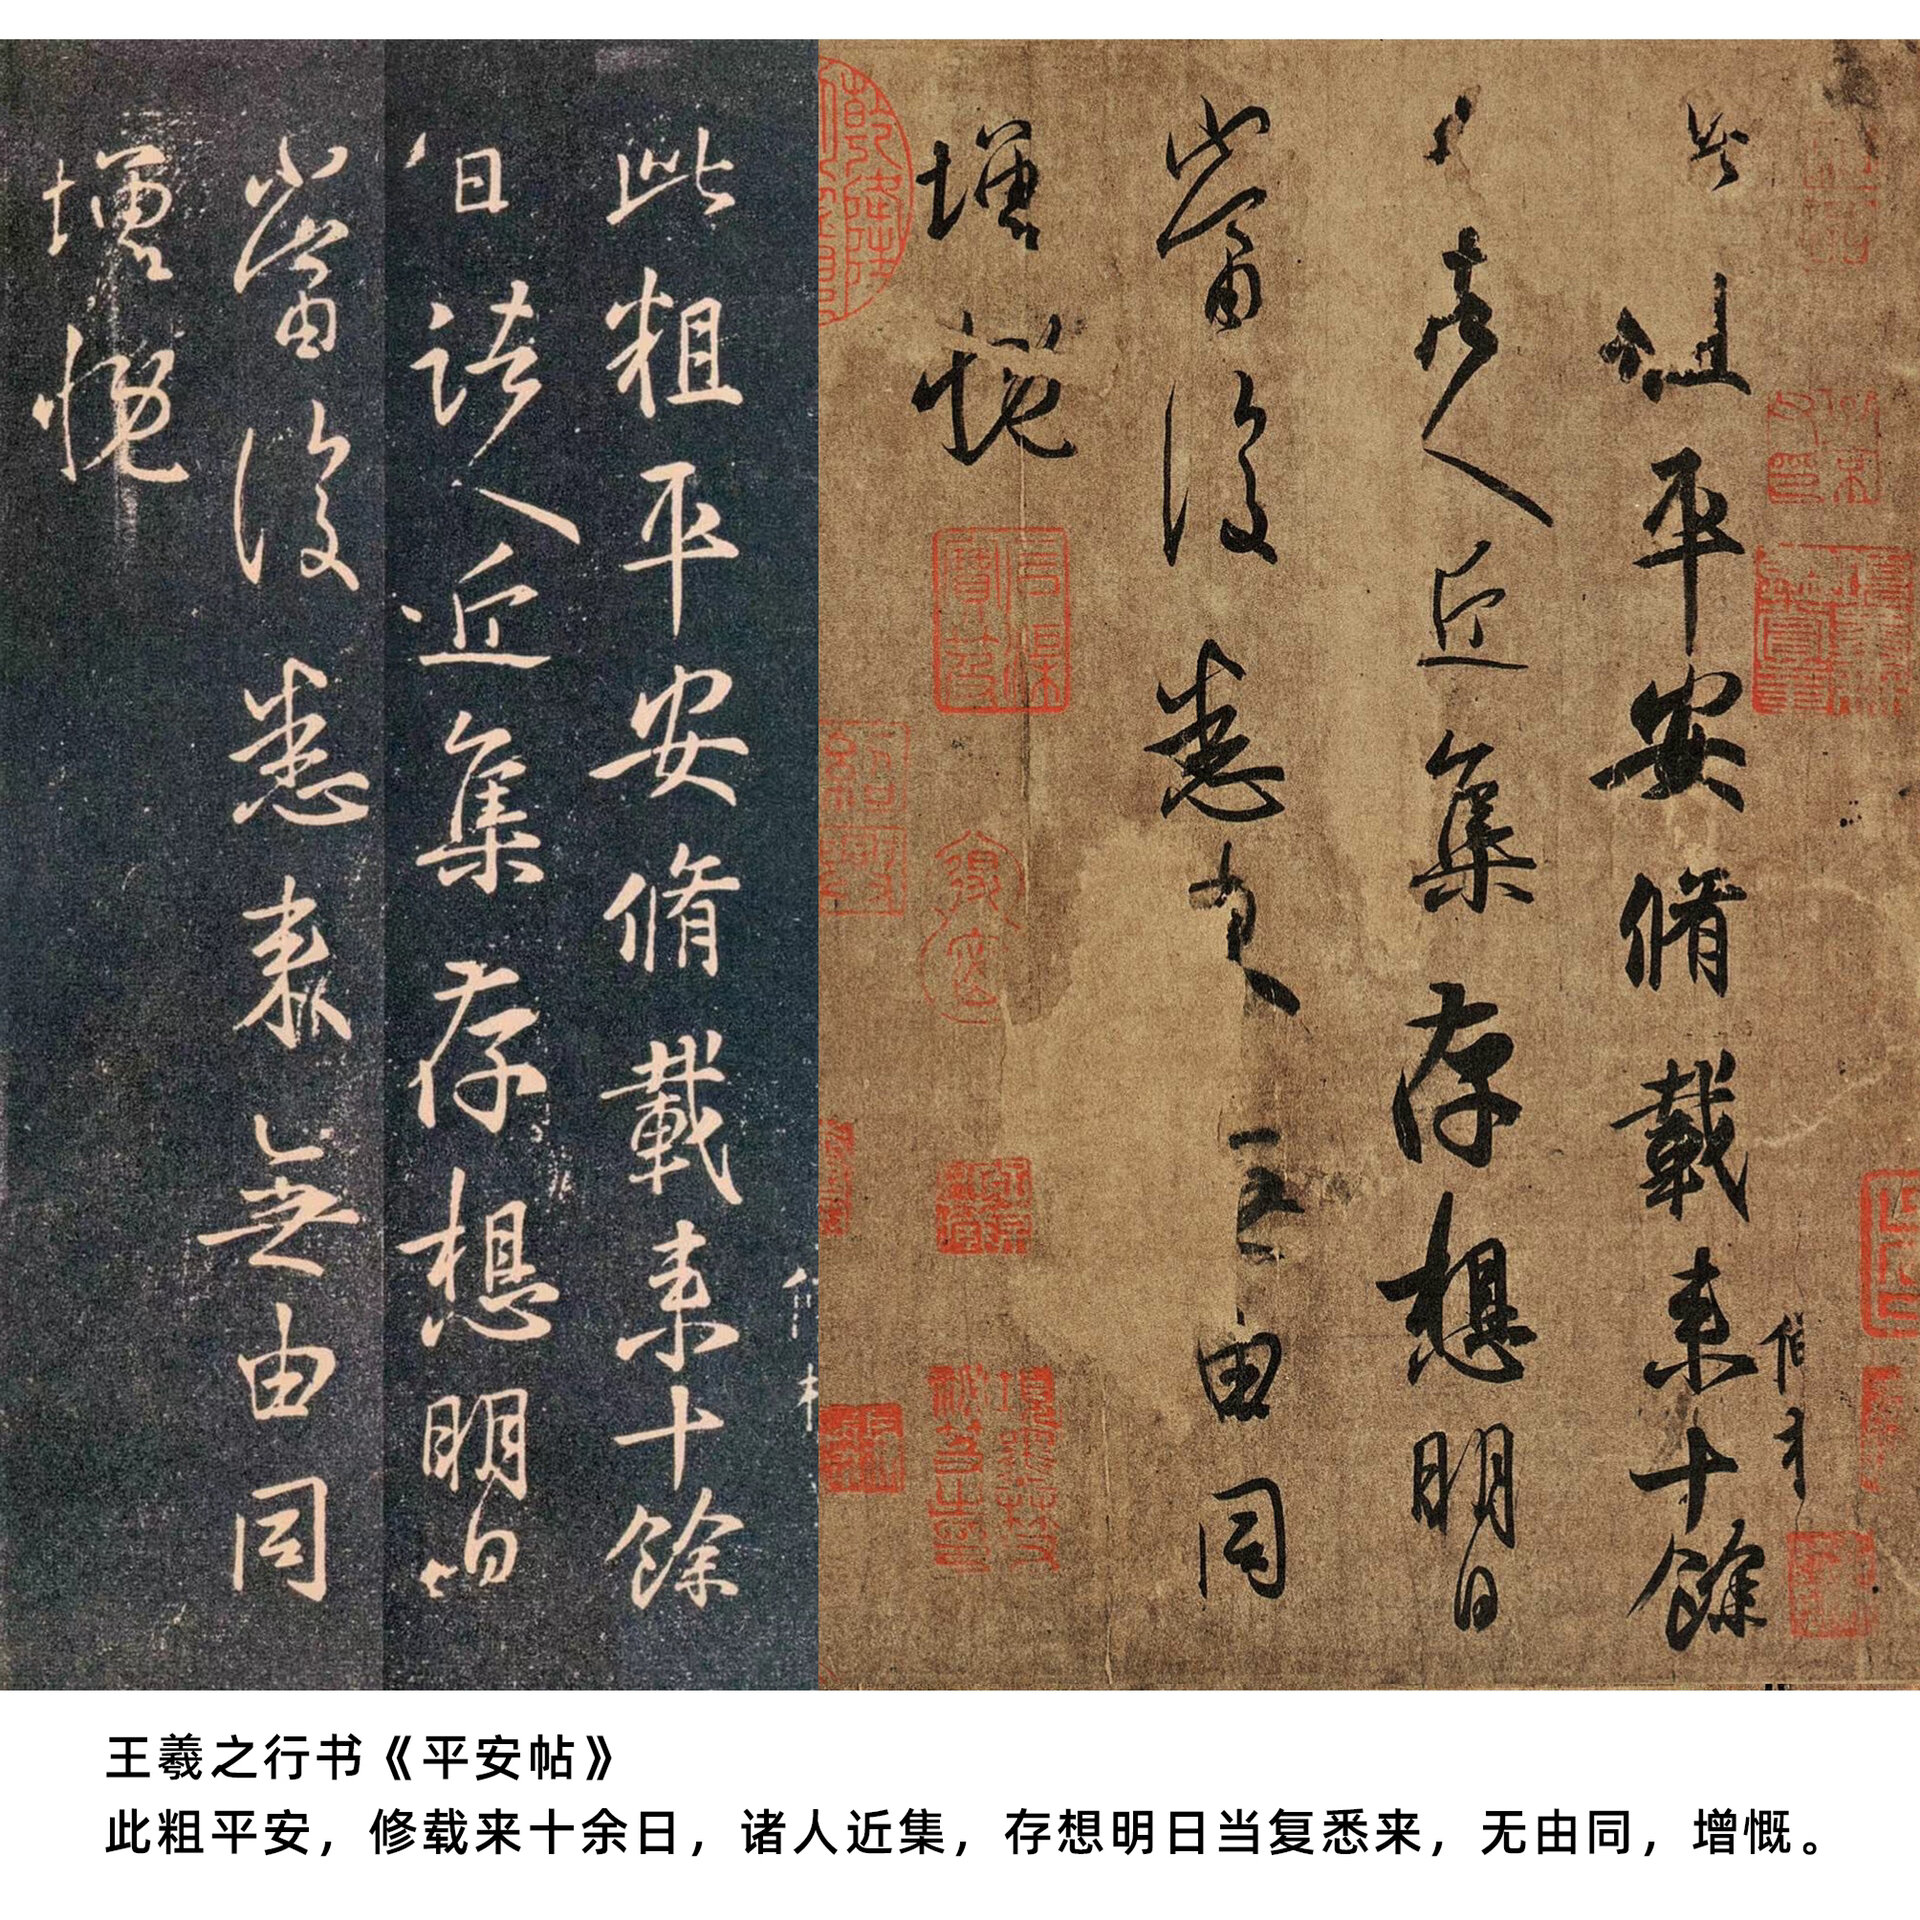 此粗平安脩載来十餘
日諸人近集存想明日
當復悉来無由同
增慨
此粗平安脩載来十餘
諸人近集存想明日
當復悉来無由同
增慨
王羲之行书《平安帖》
此粗平安，修载来十余日，诸人近集，存想明日当复悉来，无由同，增慨。